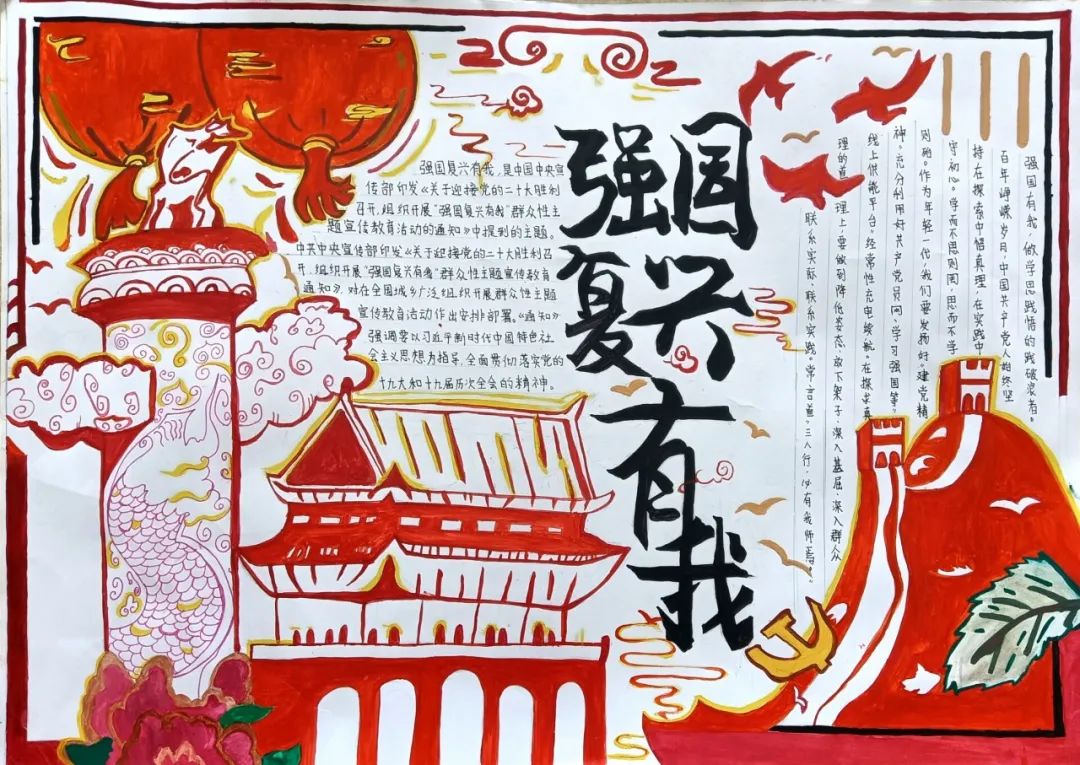 强国
复兴
有
我
强国复兴有我,是中国中央宣
传部印发《关于迎接党的二十大胜利
召开,组织开展“强国复兴有我”群众性主
题宣传教育活动的通知》中提到的主题。
中共中央宣传部印发《关于迎接党的二十大胜利召
开,组织开展“强国复兴有我”群众性主题宣传教育
通知》,对在全国城乡广泛组织开展群众性主题
宣传教育活动作出安排部署。《通知》
强调要以习近平新时代中国特色社
会主义思想为指导,全面贯彻落实党的
十九大和十九届历次全会的精神。
强国有我,做学思践悟的践破浪者。
百年峥嵘岁月,中国共产党人始终坚
持在探索中悟真理,在实践中
守初心。学而不思则罔,思而不学
则殆。作为年轻一代,我们要发扬好建党精
神。充分利用好共产党员网、学习强国等
线上供能平台。经常性充电续航。在探求真
理的直理上要做到降低姿态、放下架子、深入基层、深入群众
联系实际、联系实践。常言道。三人行,必有我师焉。